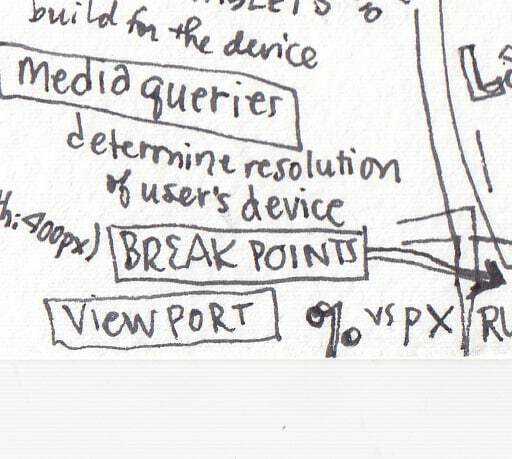 build for the device
Media queries
determine resolution
of user's device
:400px)
BREAK POINTS
VIEWPORT
% vs PX